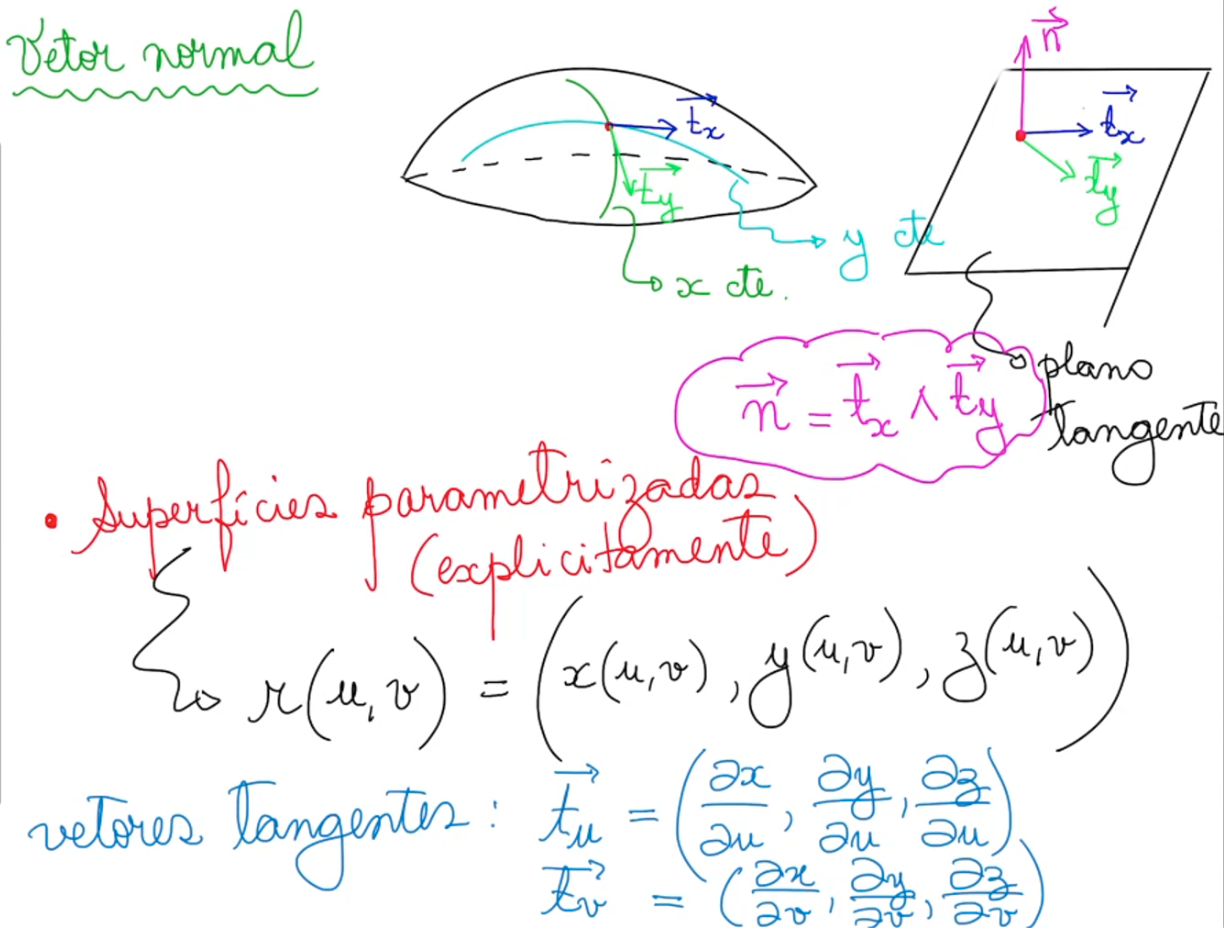 Vetor normal
n⃗
t⃗x
t⃗x
t⃗y
t⃗y
y cte
x cte.
plano
tangente
n⃗ = t⃗x ∧ t⃗y
• Superfícies parametrizadas
(explicitamente)
r(u,v) = (x(u,v), y(u,v), z(u,v))
vetores tangentes: t⃗u = (∂x/∂u, ∂y/∂u, ∂z/∂u)
t⃗v = (∂x/∂v, ∂y/∂v, ∂z/∂v)